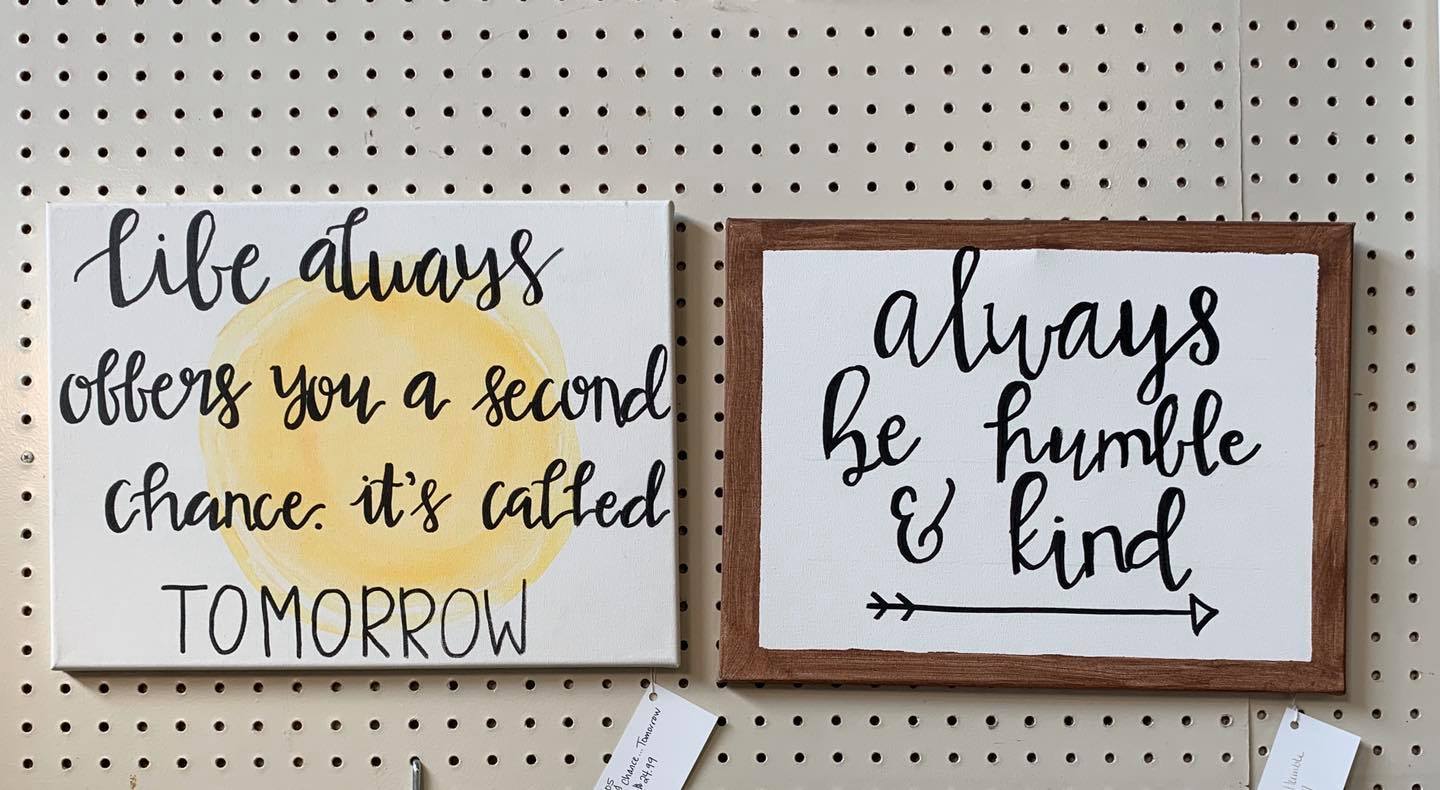 life always
offers you a second
chance. it's called
TOMORROW
always
be humble
& kind
Chance... Tomorrow
$24.99
Humble